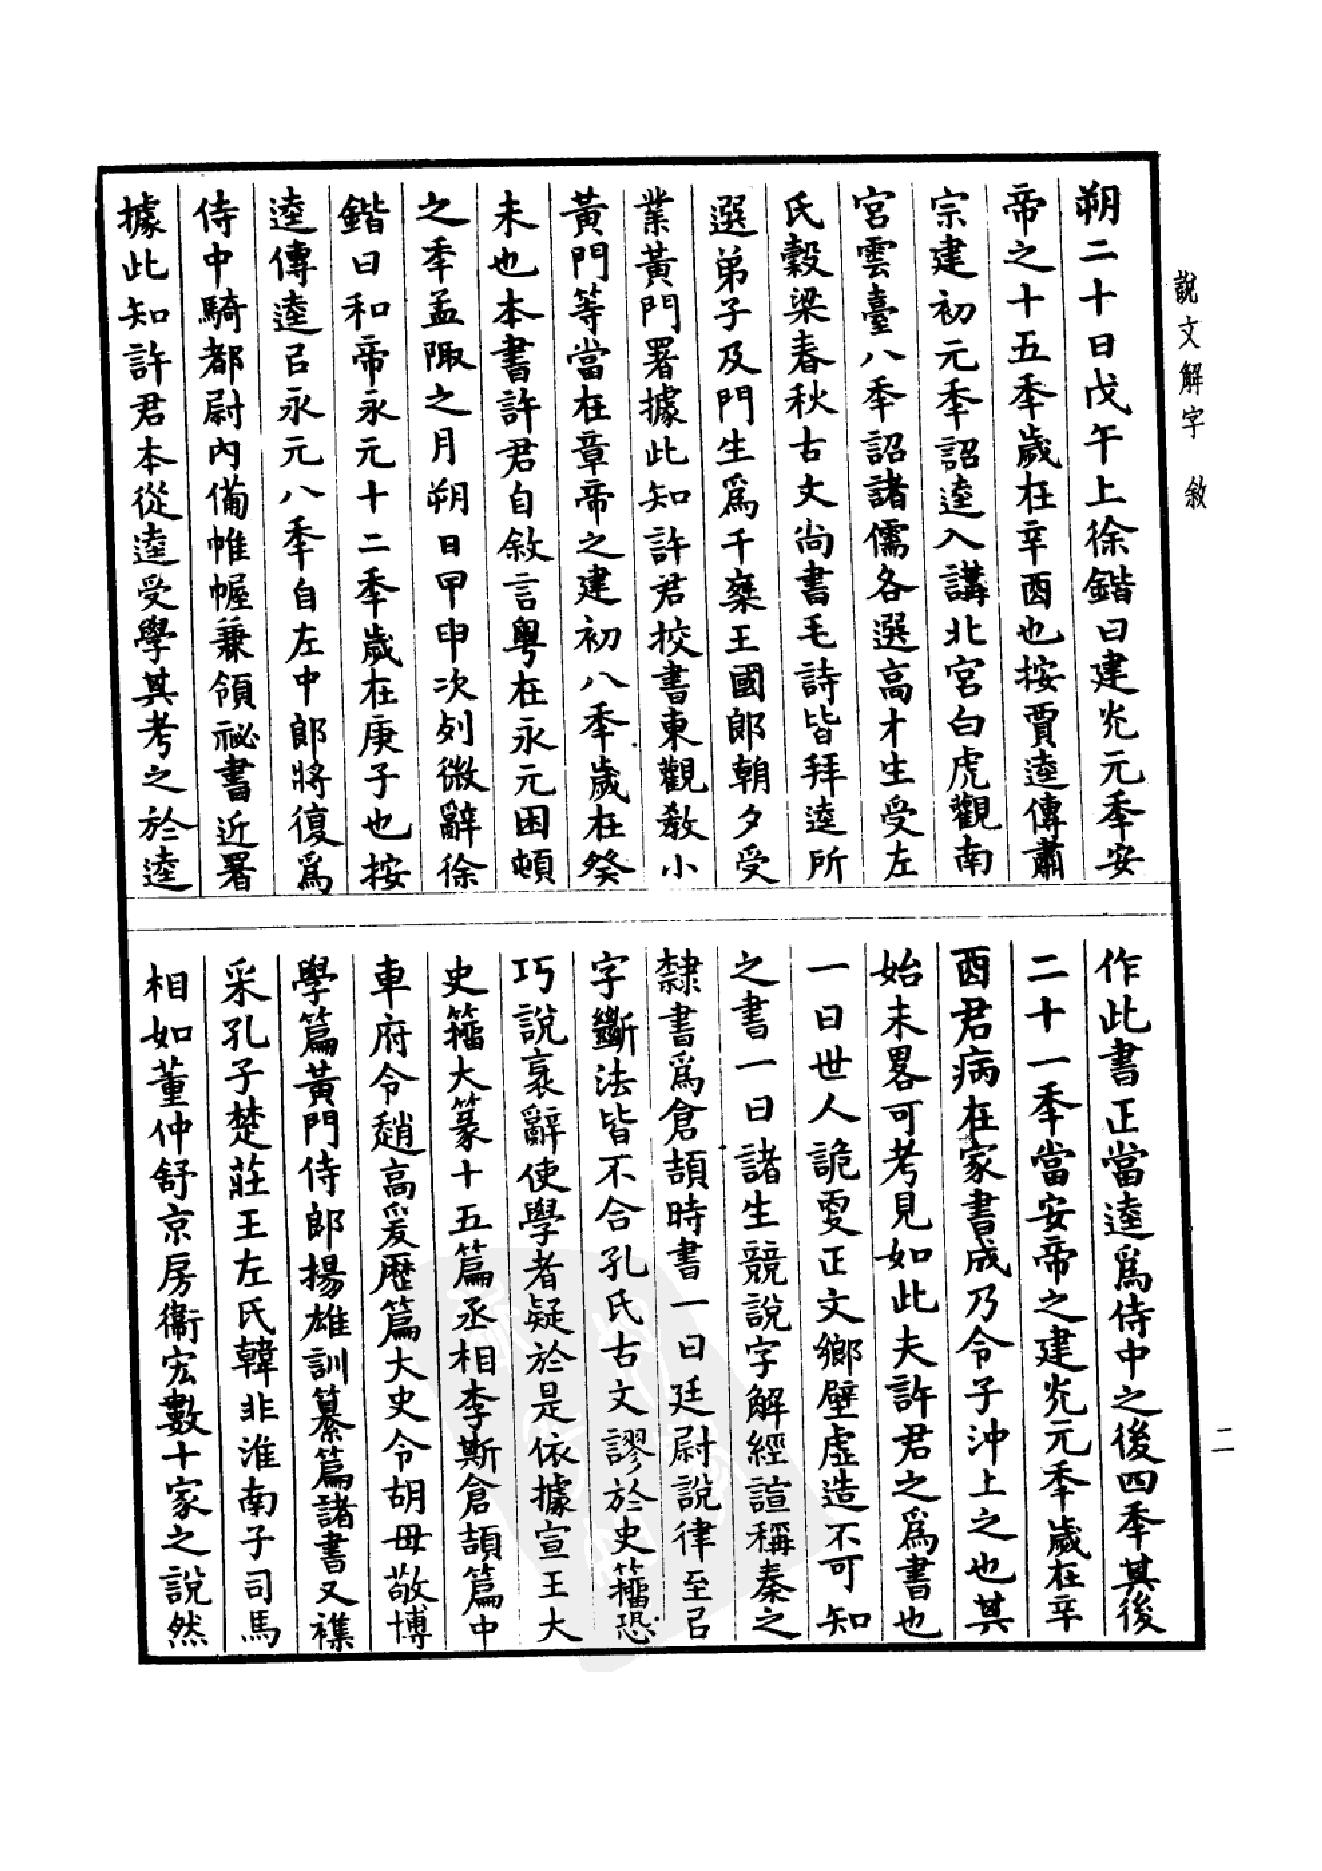 說文解字　敘
朔二十日戊午上徐鍇曰建光元秊安
帝之十五秊歲在辛酉也按賈逵傳肅
宗建初元秊詔逵入講北宮白虎觀南
宮雲臺八秊詔諸儒各選高才生受左
氏穀梁春秋古文尚書毛詩皆拜逵所
選弟子及門生爲千椉王國郎朝夕受
業黃門署據此知許君挍書東觀敎小
黃門等當在章帝之建初八秊歲在癸
未也本書許君自敘言粵在永元困頓
之秊孟陬之月朔日甲申次列微辭徐
鍇曰和帝永元十二秊歲在庚子也按
逵傳逵㠯永元八秊自左中郎將復爲
侍中騎都尉內備帷幄兼領祕書近署
據此知許君本從逵受學其考之於逵
作此書正當逵爲侍中之後四秊其後
二十一秊當安帝之建光元秊歲在辛
酉君病在家書成乃令子沖上之也其
始末畧可考見如此夫許君之爲書也
一曰世人詭更正文鄉壁虛造不可知
之書一曰諸生競說字解經諠稱秦之
隸書爲倉頡時書一曰廷尉說律至㠯
字斷法皆不合孔氏古文謬於史籒恐
巧說衺辭使學者疑於是依據宣王大
史籒大篆十五篇丞相李斯倉頡篇中
車府令趙高爰歷篇大史令胡毋敬博
學篇黃門侍郎揚雄訓纂篇諸書又襍
采孔子楚莊王左氏韓非淮南子司馬
相如董仲舒京房衞宏數十家之說然
二